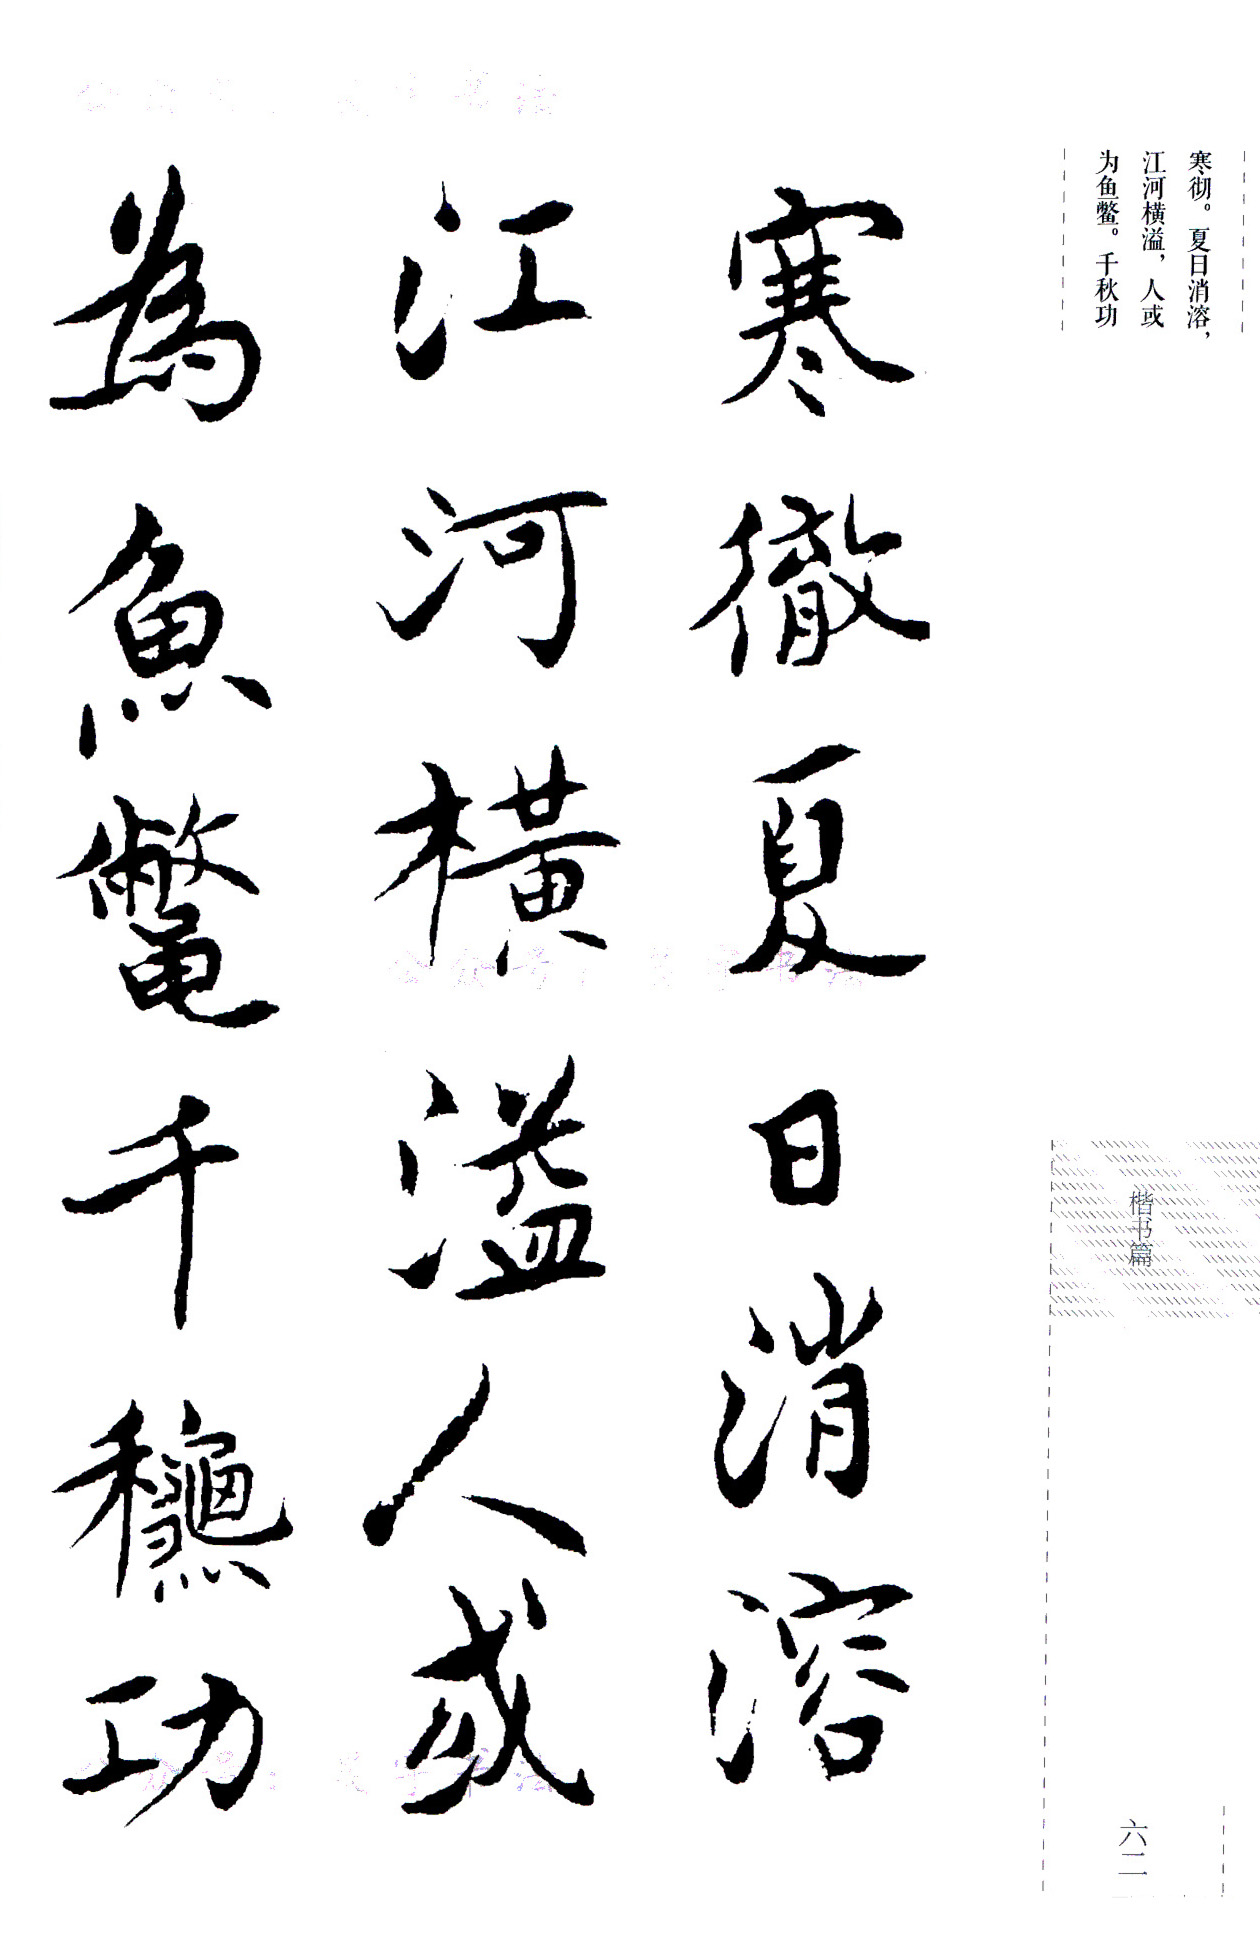 寒彻。夏日消溶，
江河横溢，人或
为鱼鳖。千秋功
楷书篇
六二
寒徹夏日消溶
江河橫溢人或
為魚鼈千龝功